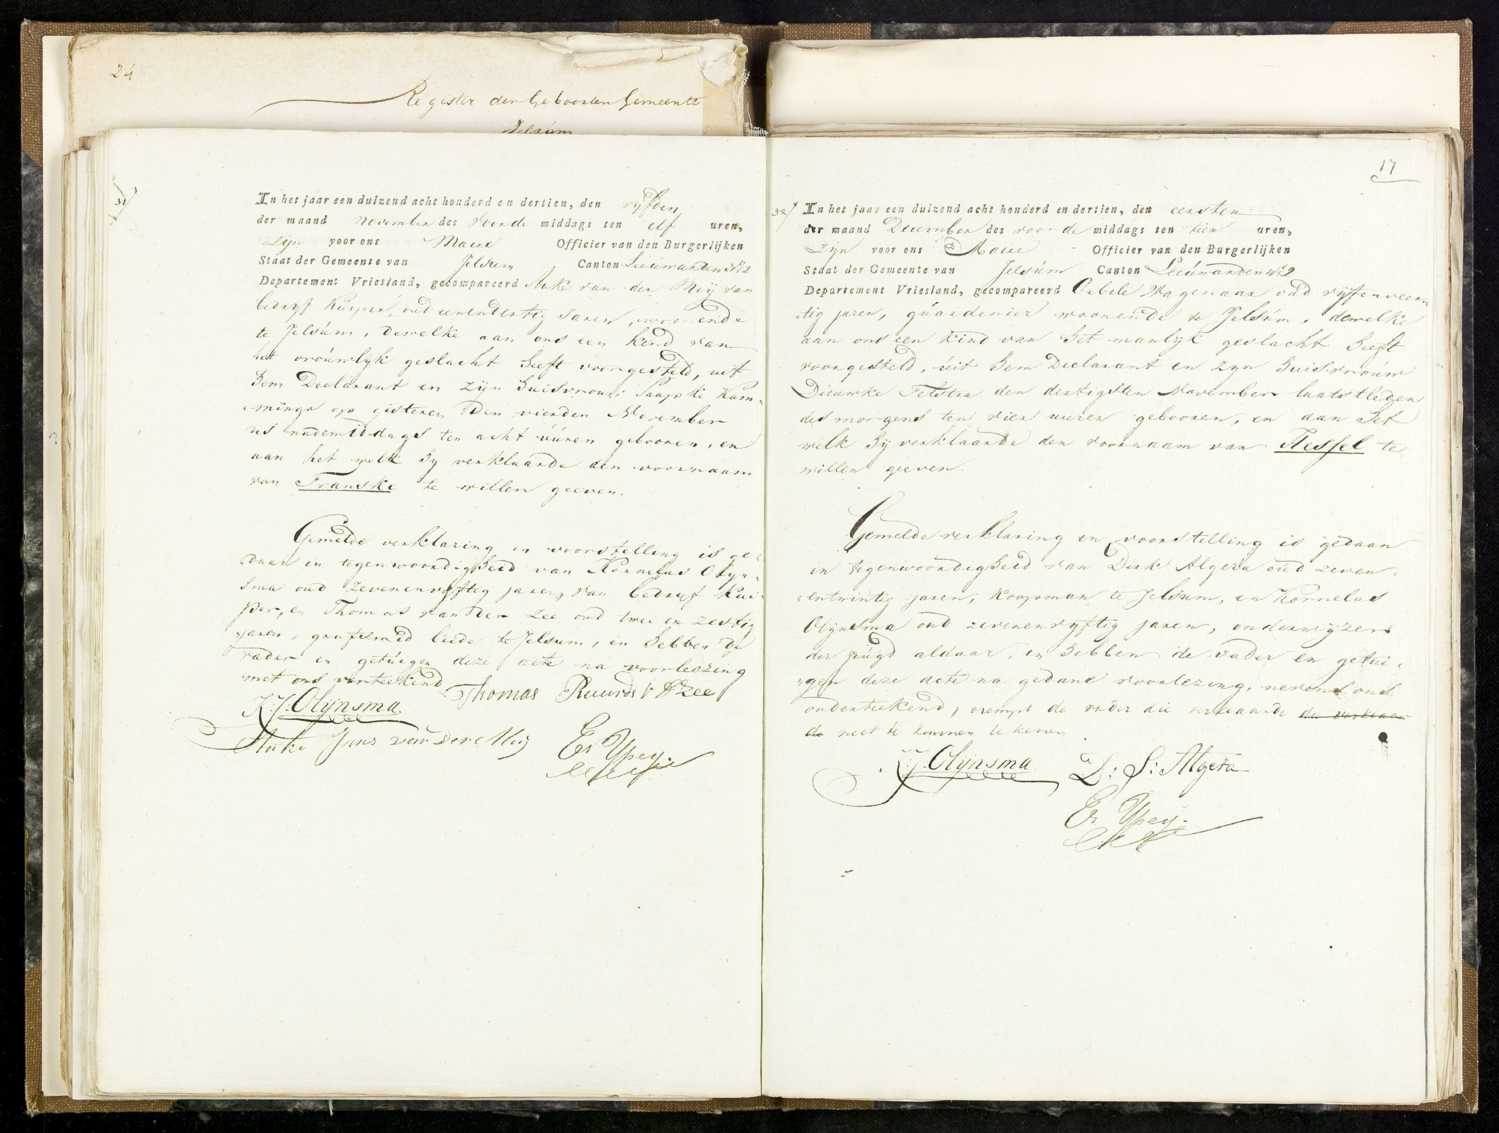 24
Register der Geboorten Gemeente
Jelsum
31
In het jaar een duizend acht honderd en dertien, den vyfden
der maand November des voorde middags ten elf uren,
Zijn voor ons Maire Officier van den Burgerlijken
Staat der Gemeente van Jelsum Canton Leeuwarden No 2
Departement Vriesland, gecompareerd Auke van der Meij van
bedryf Kuiper, oud eenendertig Jaren, woonende
te Jelsum, dewelke aan ons een kind van
het vrouwlyk geslacht heeft voorgesteld, uit
hem Declarant en zijn huisvrouw Saapke Kam-
minga op gisteren den vierden November
des nademiddags ten acht uuren geboren, en
aan het welk hy verklaarde den voornaam
van Franske te willen geeven.
Gemelde verklaring en voorstelling is ge-
daan in tegenwoordigheid van Kornelus Olyn-
sma oud zevenenvyftig jaren, van bedryf Kui-
per, en Thomas van der Zee oud twee en zestig
jaren, grofsmid beide te Jelsum, en hebben de
vader en getuigen deze acte na voorlezing
met ons onderteekend
K: J: Olynsma Thomas Ruurds v d Zee
Auke Jans van der Meij Es Ypey.
17
32
In het jaar een duizend acht honderd en dertien, den eersten
der maand December des voorde middags ten tien uren,
Zijn voor ons Maire Officier van den Burgerlijken
Staat der Gemeente van Jelsum Canton Leeuwarden No 2
Departement Vriesland, gecompareerd Oebele Wagenaar oud vyfenveer-
tig jaren, guardenier woonende te Jelsum, dewelke
aan ons een kind van het manlyk geslacht heeft
voorgesteld, uit hem Declarant en zyn huisvrouw
Dieuwke Feitsra den dertigsten November laatstleden
des morgens ten vier uuren geboren, en aan het
welk hij verklaarde den voornaam van Hessel te
willen geeven.
Gemelde verklaring en voorstelling is gedaan
in tegenwoordigheid van Dirk Algera oud zeven-
entwintig jaren, koopman te Jelsum, en Kornelus
Olynsma oud zevenenvyftig jaren, onderwyzer
der jeugd aldaar, en hebben de vader en getui-
gen deze acte na gedane voorlezing, nevens ons
onderteekend, exempt de vader die verklaarde
niet te kunnen schryven
K: J: Olynsma D: S: Algera
Es Ypey.